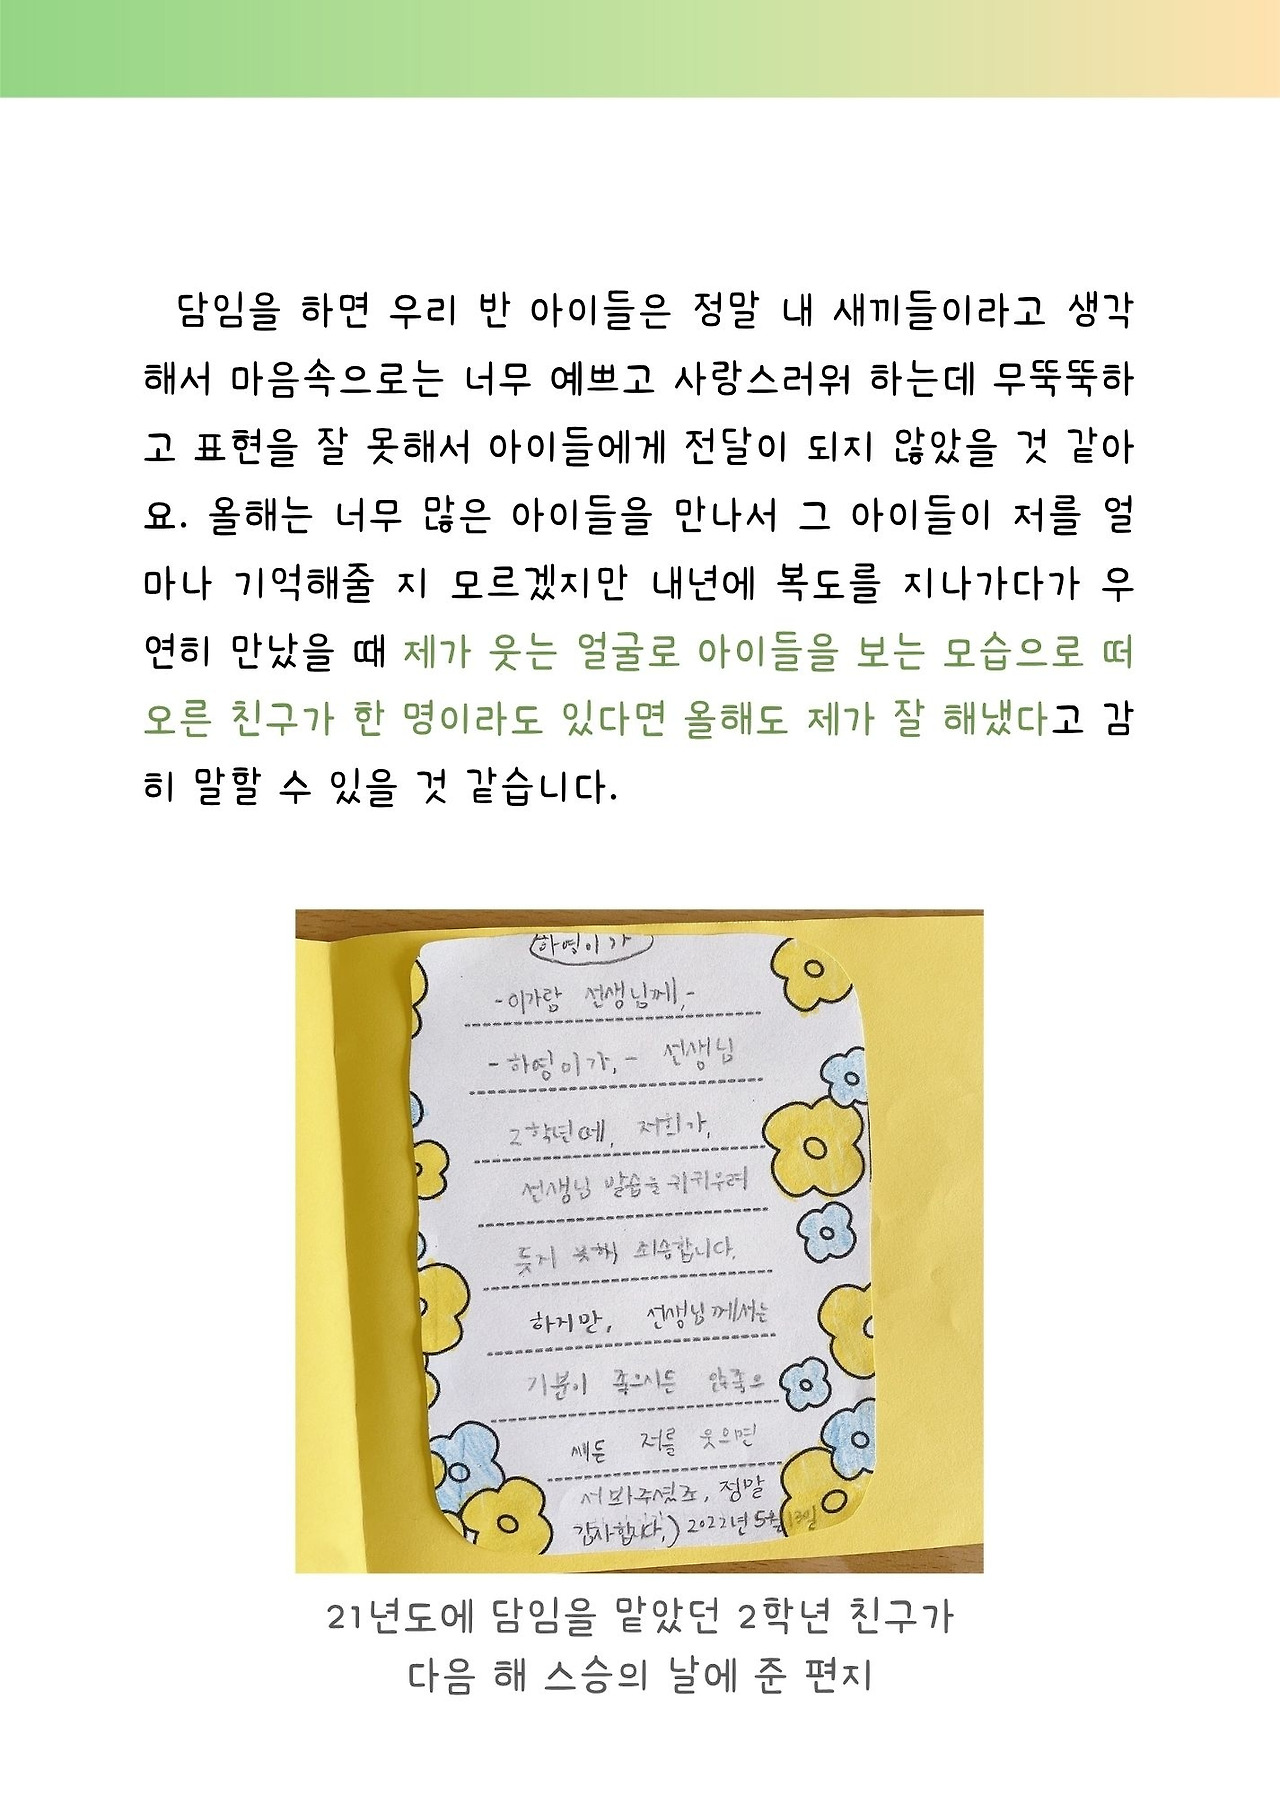 담임을 하면 우리 반 아이들은 정말 내 새끼들이라고 생각
해서 마음속으로는 너무 예쁘고 사랑스러워 하는데 무뚝뚝하
고 표현을 잘 못해서 아이들에게 전달이 되지 않았을 것 같아
요. 올해는 너무 많은 아이들을 만나서 그 아이들이 저를 얼
마나 기억해줄 지 모르겠지만 내년에 복도를 지나가다가 우
연히 만났을 때 제가 웃는 얼굴로 아이들을 보는 모습으로 떠
오른 친구가 한 명이라도 있다면 올해도 제가 잘 해냈다고 감
히 말할 수 있을 것 같습니다.
하영이가
-이가람 선생님께,-
-하영이가,- 선생님
2학년에, 저희가,
선생님 말씀을 귀기우려
듣지 못해 죄송합니다.
하지만, 선생님께서는
기분이 좋으시든
저를 웃으면
서 봐주셨죠, 정말
감사합니다,) 2022년 5월 13일
21년도에 담임을 맡았던 2학년 친구가
다음 해 스승의 날에 준 편지